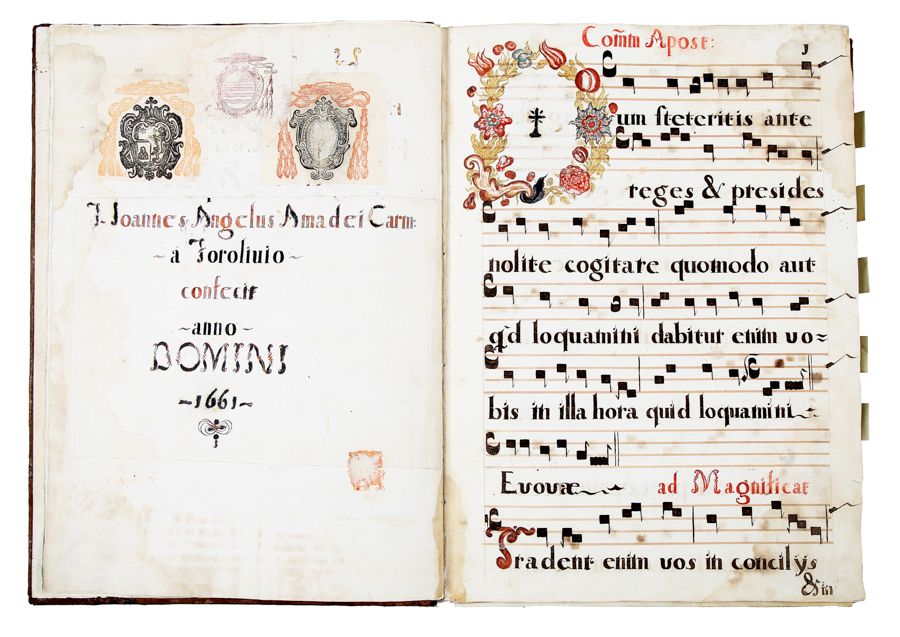 F. Ioannes Angelus Amadei Carm:
~ a Foroliuio ~
confecit
~ anno ~
DOMINI
~ 1661 ~
Com̄m Apost:
1
Dum steteritis ante
reges & presides
nolite cogitare quomodo aut
qd loquamini dabitur enim uo=
bis in illa hora quid loquamini
Evovæ ad Magnificat
Tradent enim uos in concilijs
& in